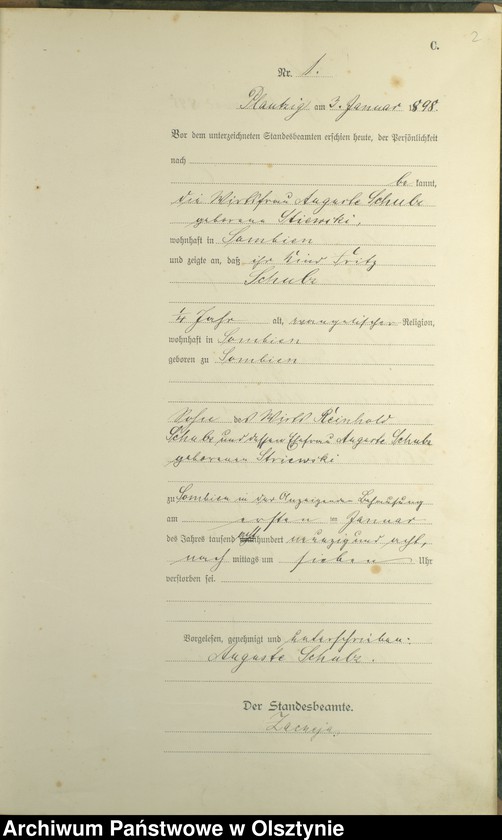 2
C.
Nr. 1.
Plautzig am 3. Januar 1898.
Vor dem unterzeichneten Standesbeamten erschien heute, der Persönlichkeit
nach
be kannt,
die Wirtsfrau Auguste Schulz
geborene Striewski,
wohnhaft in Sombien
und zeigte an, daß ihr Kind Fritz
Schulz
1/4 Jahr alt, evangelischer Religion,
wohnhaft in Sombien
geboren zu Sombien
Sohn des Wirts Reinhold
Schulz und dessen Ehefrau Auguste Schulz
geborenen Striewski
zu Sombien in der Anzeigenden Behausung
am ersten Januar
des Jahres tausend acht hundert neunzig und acht,
nach mittags um sieben Uhr
verstorben sei.
Vorgelesen, genehmigt und unterschrieben:
Auguste Schulz.
Der Standesbeamte.
Archiwum Państwowe w Olsztynie